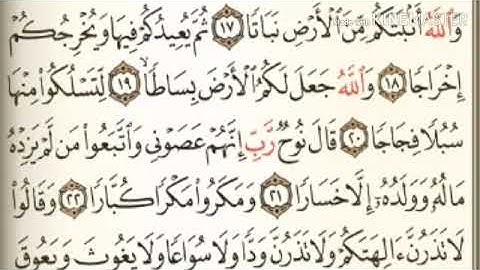 KINEMASTER
وَٱللَّهُ أَنۢبَتَكُم مِّنَ ٱلْأَرْضِ نَبَاتًا ١٧ ثُمَّ يُعِيدُكُمْ فِيهَا وَيُخْرِجُكُمْ
إِخْرَاجًا ١٨ وَٱللَّهُ جَعَلَ لَكُمُ ٱلْأَرْضَ بِسَاطًا ١٩ لِّتَسْلُكُوا۟ مِنْهَا
سُبُلًا فِجَاجًا ٢٠ قَالَ نُوحٌ رَّبِّ إِنَّهُمْ عَصَوْنِى وَٱتَّبَعُوا۟ مَن لَّمْ يَزِدْهُ
مَالُهُۥ وَوَلَدُهُۥٓ إِلَّا خَسَارًا ٢١ وَمَكَرُوا۟ مَكْرًا كُبَّارًا ٢٢ وَقَالُوا۟
لَا تَذَرُنَّ ءَالِهَتَكُمْ وَلَا تَذَرُنَّ وَدًّا وَلَا سُوَاعًا وَلَا يَغُوثَ وَيَعُوقَ